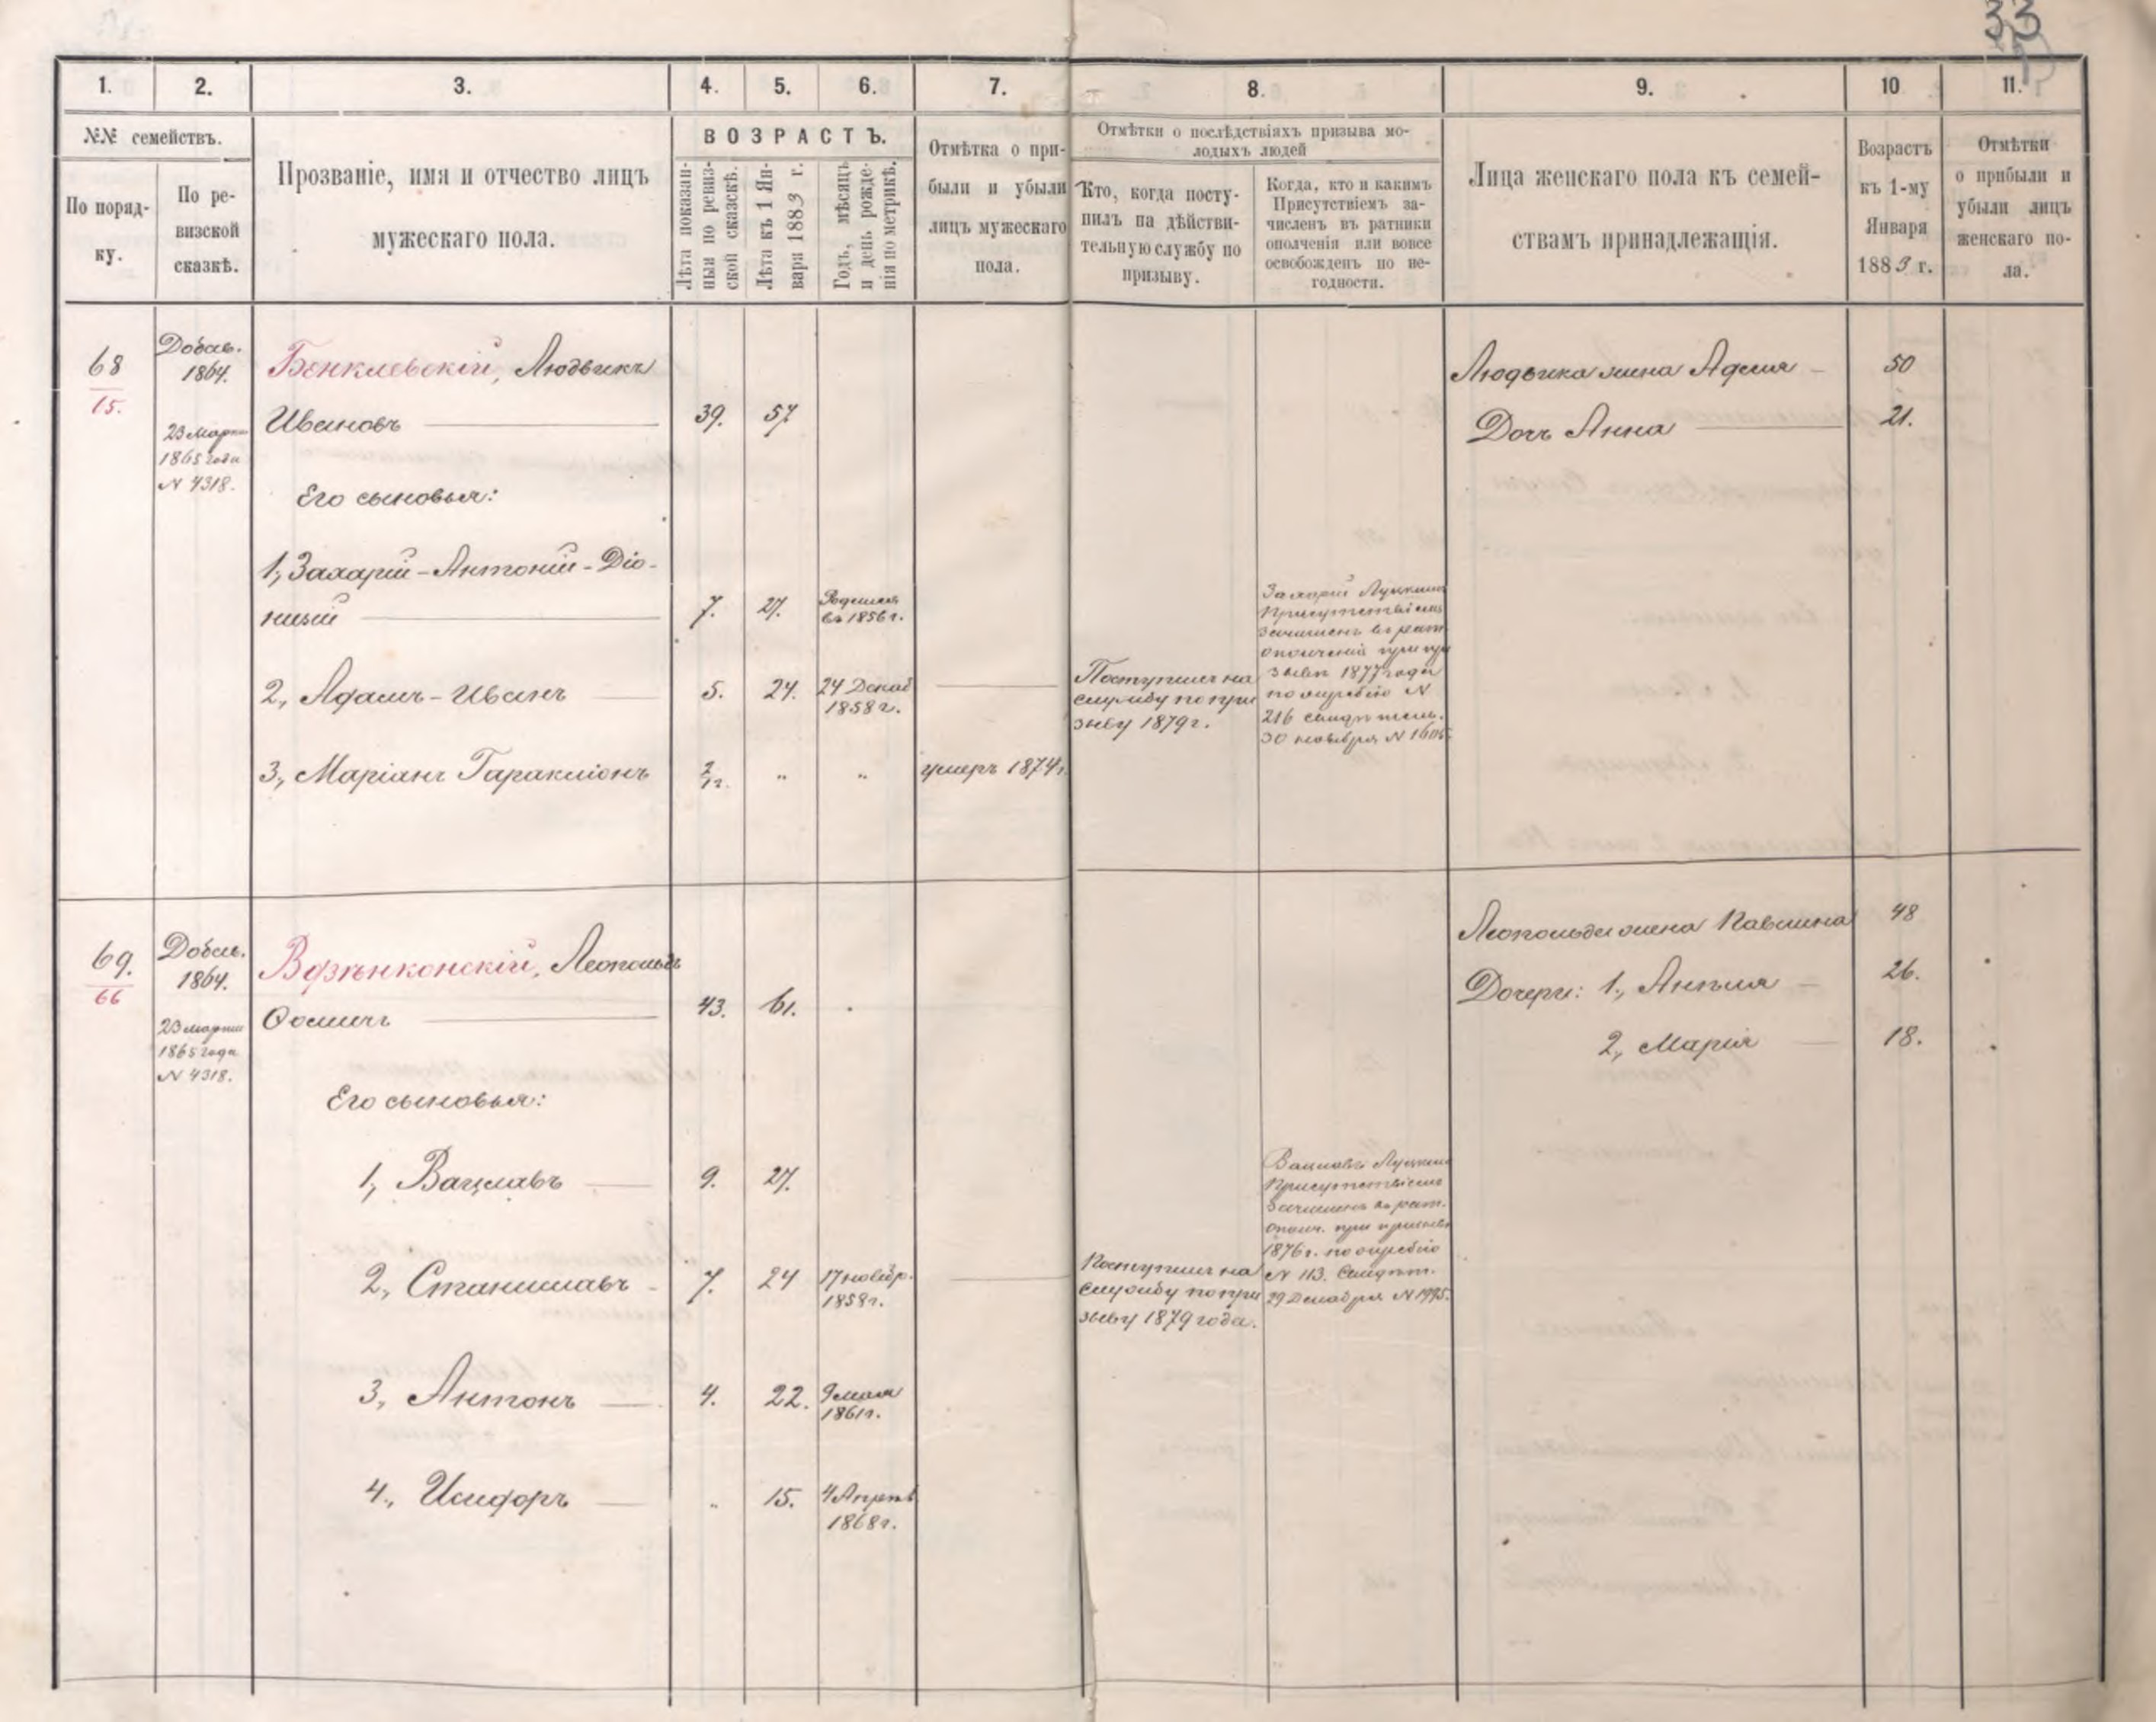 33
1. 2. 3. 4. 5. 6. 7. 8. 9. 10 11.
№№ семействъ.
По поряд-
ку.
По ре-
визской
сказкѣ.
Прозваніе, имя и отчество лицъ
мужескаго пола.
ВОЗРАСТЪ.
Лѣта показан-
ныя по ревиз-
ской сказскѣ.
Лѣта къ 1 Ян-
варя 1883 г.
Годъ, мѣсяцъ
и день рожде-
нія по метрикѣ.
Отмѣтка о при-
были и убыли
лицъ мужескаго
пола.
Отмѣтки о послѣдствіяхъ призыва мо-
лодыхъ людей
Кто, когда посту-
пилъ на дѣйстви-
тельную службу по
призыву.
Когда, кто и какимъ
Присутствіемъ за-
численъ въ ратники
ополченія или вовсе
освобожденъ по не-
годности.
Лица женскаго пола къ семей-
ствамъ принадлежащія.
Возрастъ
къ 1-му
Января
1883 г.
Отмѣтки
о прибыли и
убыли лицъ
женскаго по-
ла.
68
15.
Добав.
1864.
23 Марта
1865 года
N 4318.
Бенклевскій, Людвикъ
Ивановъ 39. 57
Его сыновья:
1, Захарій-Антоній-Діо-
низій 7. 27. Родился
въ 1856 г.
Захарій Луцкимъ
Присутствіемъ
Зачисленъ въ рат.
ополченія при при
зывѣ 1877 года
по жребію N
216 свидѣтель.
30 ноября N
2, Адамъ-Иванъ 5. 24. 24 Декаб
1858 г.
Поступилъ на
службу по при
зыву 1879 г.
3, Маріанъ Гаракліонъ 2/1 г. " " умеръ 1874 г.
Людвика жена Аделя 50
Дочь Анна 21.
69.
66
Добав.
1864.
23 марта
1865 года
N 4318.
Вдзѣнконскій, Леопольдъ
Ѳомичъ 43. 61.
Его сыновья:
1, Вацлавъ 9. 27.
Вацлавъ Луцкимъ
Присутствіемъ
Зачисленъ въ рат.
ополч. при призывѣ
1876 г. по жребію
N 113. Свидѣт.
29 Декабря N 1995.
2, Станиславъ 7. 24 17 ноябр.
1858 г.
Поступилъ на
службу по при
зыву 1879 года.
3, Антонъ 4. 22. 9 мая
1861 г.
4., Исидоръ " 15. 4 Апрѣл
1868 г.
Леопольда жена Павлина 48
Дочери: 1., Анѣля 26.
2, Марія 18.